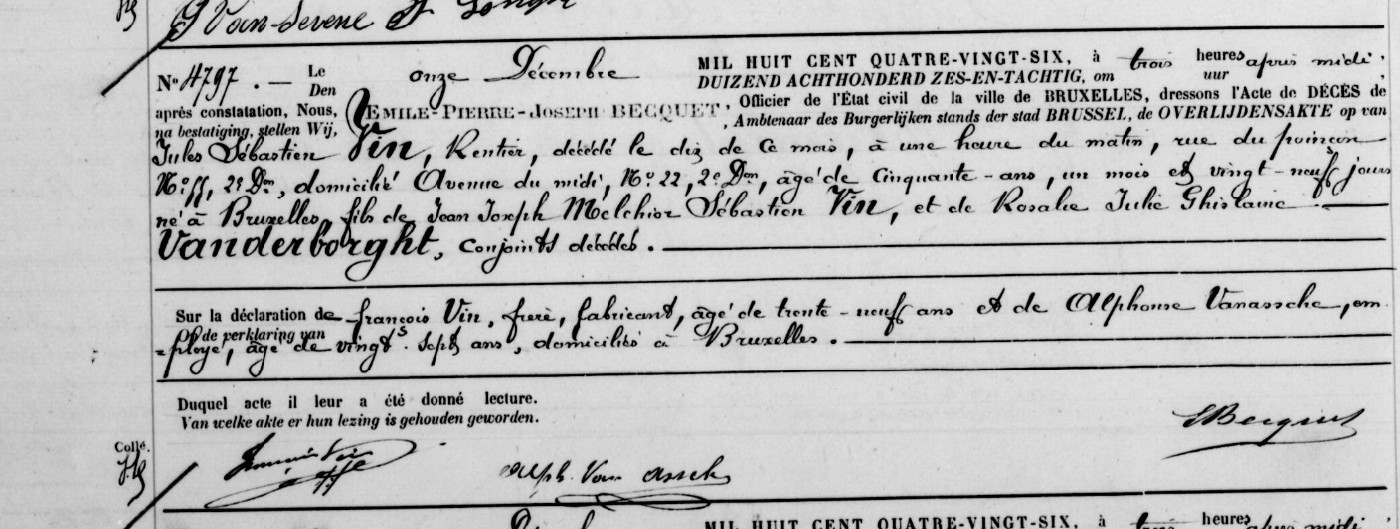 J Van Sevene
No 4797. — Le onze Décembre MIL HUIT CENT QUATRE-VINGT-SIX, à trois heures après midi.
Den DUIZEND ACHTHONDERD ZES-EN-TACHTIG, om uur
après constatation, Nous, EMILE-PIERRE-JOSEPH BECQUET, Officier de l'État civil de la ville de BRUXELLES, dressons l'Acte de DÉCÈS de
na bestatiging, stellen Wij, Ambtenaar des Burgerlijken stands der stad BRUSSEL, de OVERLIJDENSAKTE op van
Jules Sébastien Vin, Rentier, décédé le dix de ce mois, à une heure du matin, rue du poinçon
No 55, 2e Don, domicilié Avenue du midi, No 22, 2e Don, âgé de Cinquante-ans, un mois et vingt-neuf jours
né à Bruxelles, fils de Jean Joseph Melchior Sébastien Vin, et de Rosalie Julie Ghislaine
Vanderborght, conjoints décédés.
Sur la déclaration de françois Vin, frère, fabricant, âgé de trente-neuf ans et de Alphonse Vanassche, em
Op de verklaring van
-ployé, âgé de vingt-sept ans, domiciliés à Bruxelles.
Duquel acte il leur a été donné lecture.
Van welke akte er hun lezing is gehouden geworden.
EBecquet
Collé.
Alph. Van Assche
MIL HUIT CENT QUATRE-VINGT-SIX, à trois heures après midi